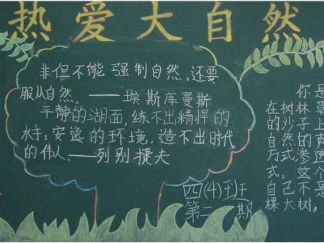 热爱大自然
非但不能强制自然，还要
服从自然。——埃斯库曼斯
平静的湖面，练不出精悍的
水手；安逸的环境，造不出时代
的伟人。——列别捷夫
四(4)班
第二期
你是
在树林
的沙子上
自然的声
方式，渗透
式。这个
自己不是
棵大树。